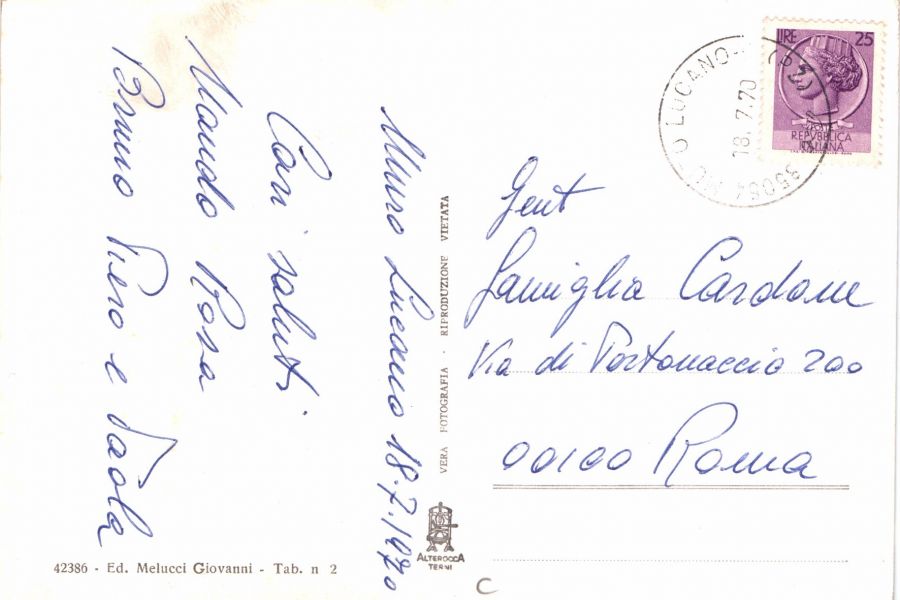 Muro Lucano 18.7.1970
Cari saluti
Nando Rosa
Bruno Piero e Paola
VERA FOTOGRAFIA - RIPRODUZIONE VIETATA
LIRE 25
REPVBBLICA
ITALIANA
LUCANO
18.7.70
Gent
Famiglia Cardone
Via di Portonaccio 200
00100 Roma
ALTEROCCA
TERNI
42386 - Ed. Melucci Giovanni - Tab. n 2
C